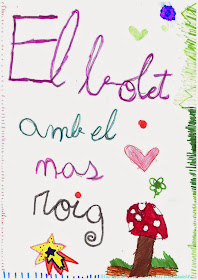 El bolet
amb el
nas
roig